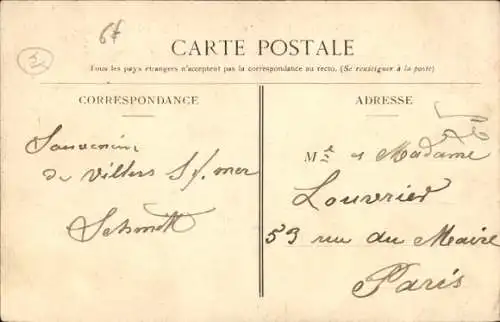 6f
CARTE POSTALE
Tous les pays étrangers n'acceptent pas la correspondance au recto. (Se renseigner à la poste)
CORRESPONDANCE
ADRESSE
Souvenir
de Villers S/. mer
Schmitt
Mr et Madame
Louvrier
53 rue du Maire
Paris